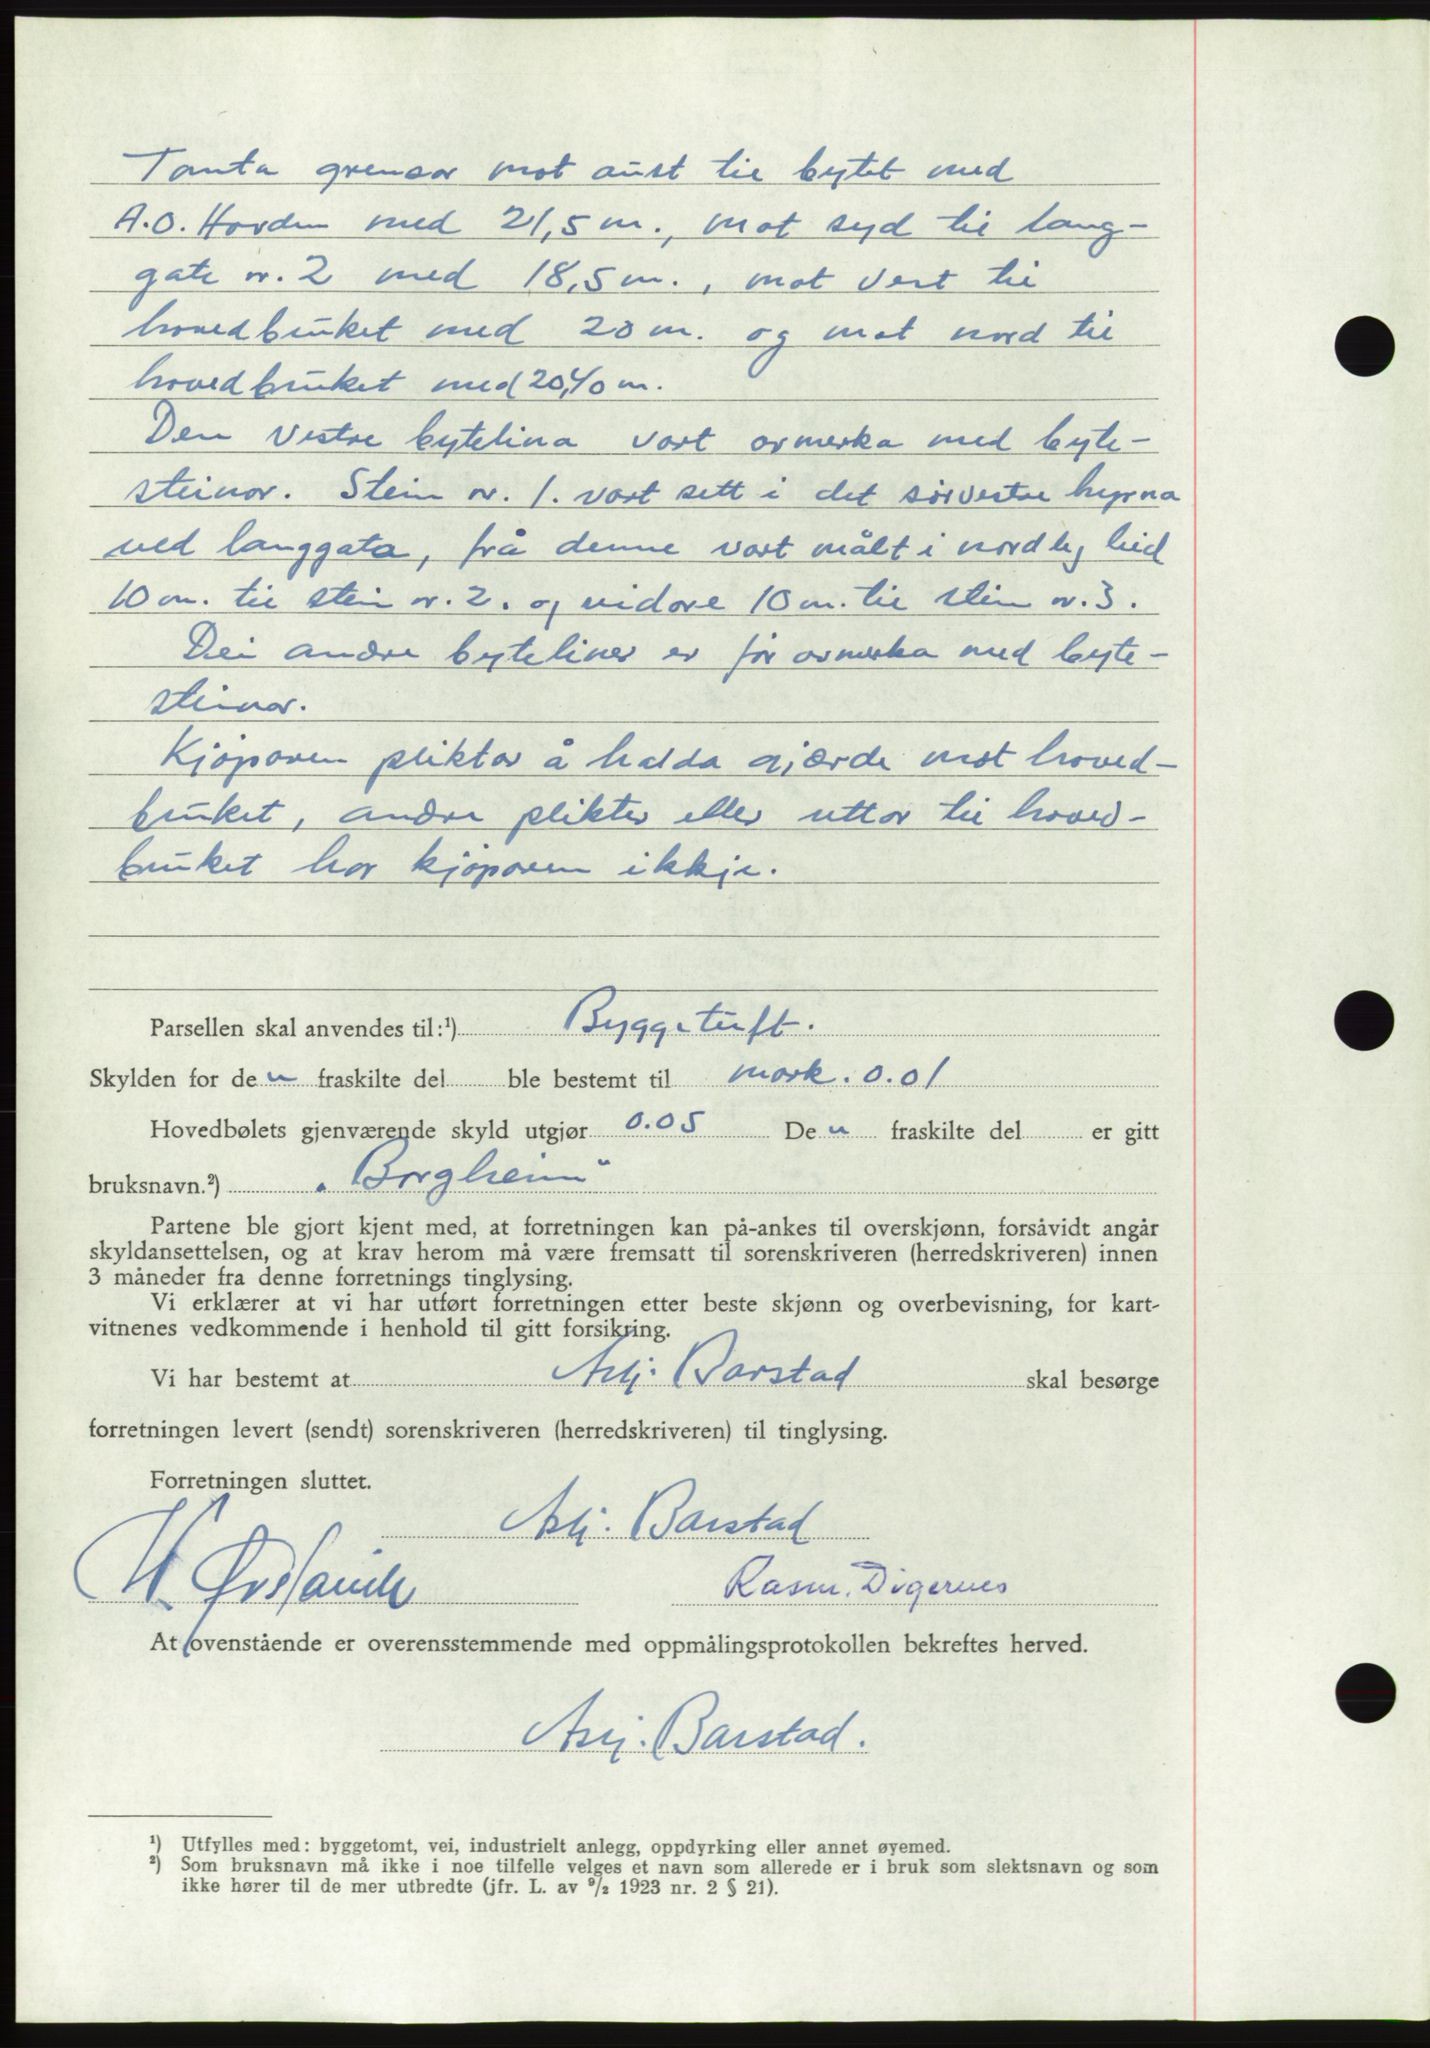 Tomta grensar mot aust til bytet med
A.O. Hovden med 21,5 m., mot syd til lang-
gate nr. 2 med 18,5 m., mot vest til
hovedbruket med 20 m. og mot nord til
hovedbruket med 20,40 m.
Den vestre bytelina vart avmerka med byte-
steinar. Stein nr. 1. vart sett i det sørvestre hyrna
ved langgata, frå denne vart målt i nordleg leid
10 m. til stein nr. 2. og vidare 10 m. til stein nr. 3.
Dei andre bytelines er før avmerka med byte-
steinar.
Kjøparen pliktar å halda gjærde mot hoved-
bruket, andre plikter eller rettar til hoved-
bruket har kjøparen ikkje.
Parsellen skal anvendes til:¹) Byggetuft.
Skylden for den fraskilte del ble bestemt til mark. 0.01
Hovedbølets gjenværende skyld utgjør 0.05 Den fraskilte del er gitt
bruksnavn.²) „Borgheim“
Partene ble gjort kjent med, at forretningen kan på-ankes til overskjønn, forsåvidt angår
skyldansettelsen, og at krav herom må være fremsatt til sorenskriveren (herredskriveren) innen
3 måneder fra denne forretnings tinglysing.
Vi erklærer at vi har utført forretningen etter beste skjønn og overbevisning, for kart-
vitnenes vedkommende i henhold til gitt forsikring.
Vi har bestemt at Aslj. Barstad skal besørge
forretningen levert (sendt) sorenskriveren (herredskriveren) til tinglysing.
Forretningen sluttet.
Aslj. Barstad
Rasm. Digernes
At ovenstående er overensstemmende med oppmålingsprotokollen bekreftes herved.
Aslj. Barstad.
¹) Utfylles med: byggetomt, vei, industrielt anlegg, oppdyrking eller annet øyemed.
²) Som bruksnavn må ikke i noe tilfelle velges et navn som allerede er i bruk som slektsnavn og som
ikke hører til de mer utbredte (jfr. L. av ⁹/₂ 1923 nr. 2 § 21).